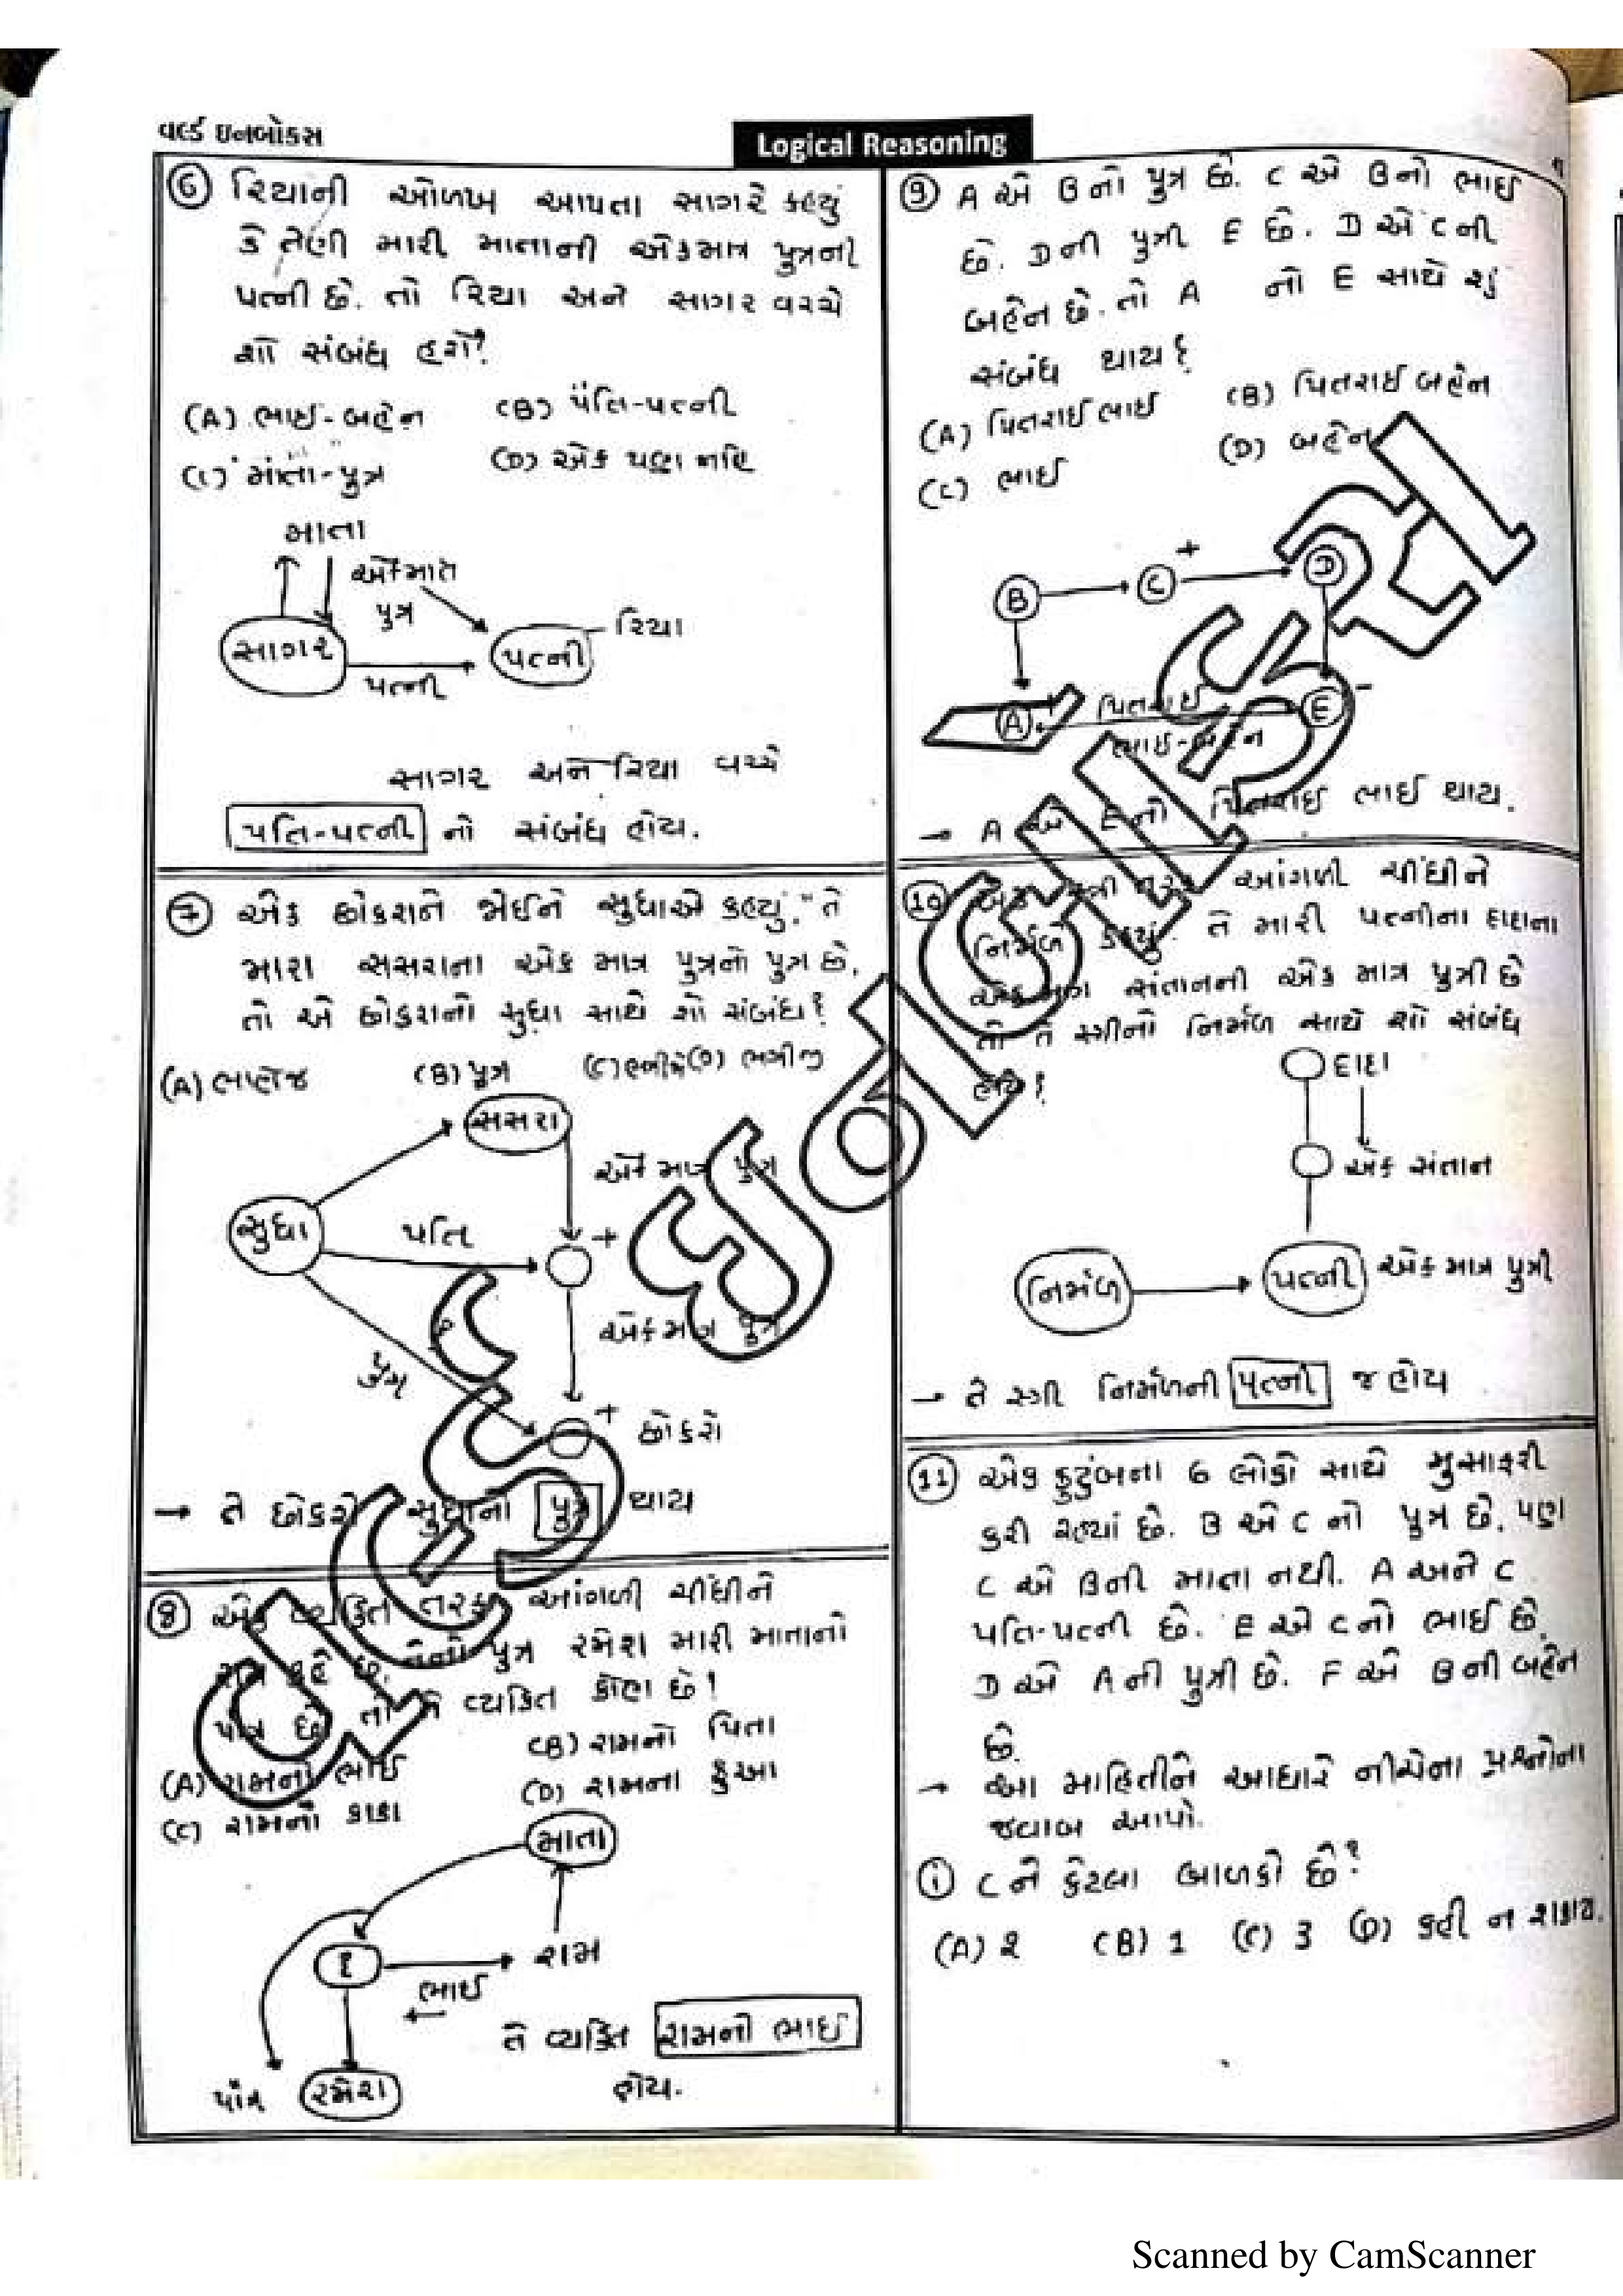 વર્લ્ડ ઇનબોક્સ
Logical Reasoning
૬ રિયાની ઓળખ આપતા સાગરે કહ્યું
કે તેણી મારી માતાની એકમાત્ર પુત્રની
પત્ની છે. તો રિયા અને સાગર વચ્ચે
શો સંબંધ હશે?
(A) ભાઈ-બહેન (B) પતિ-પત્ની
(C) માતા-પુત્ર (D) એક પણ નહિ
માતા
એકમાત્ર
પુત્ર
સાગર
પત્ની
પત્ની
રિયા
સાગર અને રિયા વચ્ચે
પતિ-પત્ની નો સંબંધ હોય.
૭ એક છોકરાને જોઈને સુધાએ કહ્યું, "તે
મારા સસરાના એક માત્ર પુત્રનો પુત્ર છે.
તો એ છોકરાનો સુધા સાથે શો સંબંધ?
(A) ભાણેજ (B) પુત્ર (D) ભત્રીજી
સસરા
એક માત્ર પુત્ર
સુધા
પતિ
+
એક માત્ર પુત્ર
પુત્ર
+
છોકરો
→ તે છોકરો સુધાનો પુત્ર થાય
8 એક વ્યક્તિ તરફ આંગળી ચીંધીને
રામ કહે છે, તેનો પુત્ર રમેશ મારી માતાનો
પૌત્ર છે તો તે વ્યક્તિ કોણ છે?
(A) રામનો ભાઈ (B) રામનો પિતા
(C) રામનો કાકા (D) રામના ફુઆ
માતા
?
રામ
ભાઈ
પૌત્ર
રમેશ
તે વ્યક્તિ રામનો ભાઈ
હોય.
9 A એ B નો પુત્ર છે. C એ B નો ભાઈ
છે. D ની પુત્રી E છે. D એ C ની
બહેન છે. તો A નો E સાથે શું
સંબંધ થાય?
(A) પિતરાઈ ભાઈ (B) પિતરાઈ બહેન
(C) ભાઈ (D) બહેન
B
C
+
D
A
પિતરાઈ
ભાઈ-બહેન
E
-
→ A એ E નો પિતરાઈ ભાઈ થાય.
10 એક સ્ત્રી તરફ આંગળી ચીંધીને
નિર્મળે કહ્યું. તે મારી પત્નીના દાદાના
એક માત્ર સંતાનની એક માત્ર પુત્રી છે
તો તે સ્ત્રીનો નિર્મળ સાથે શો સંબંધ
હોય?
દાદા
એક સંતાન
નિર્મળ
પત્ની
એક માત્ર પુત્રી
→ તે સ્ત્રી નિર્મળની પત્ની જ હોય
11 એક કુટુંબના ૬ લોકો સાથે મુસાફરી
કરી રહ્યાં છે. B એ C નો પુત્ર છે, પણ
C એ B ની માતા નથી. A અને C
પતિ-પત્ની છે. E એ C નો ભાઈ છે.
D એ A ની પુત્રી છે. F એ B ની બહેન
છે.
→ આ માહિતીને આધારે નીચેના પ્રશ્નોના
જવાબ આપો.
i C ને કેટલા બાળકો છે?
(A) ૨ (B) 1 (C) ૩ (D) કહી ન શકાય.
Scanned by CamScanner